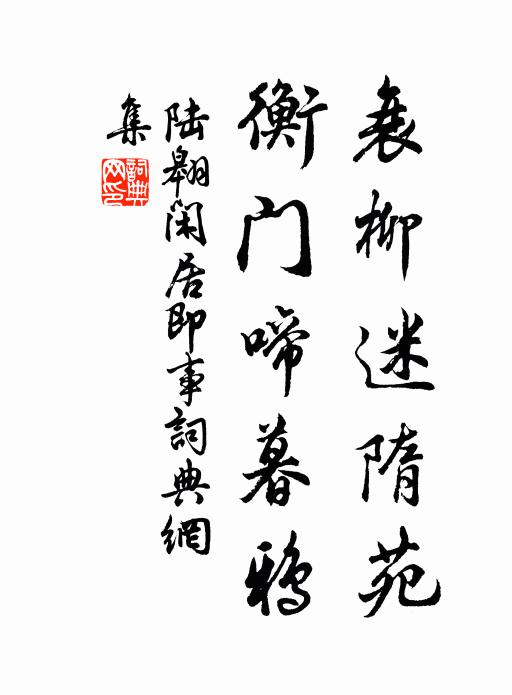 衰柳迷隋苑
衡门啼暮鸦
陆翱闲居即事詞典網
集
詞典网印